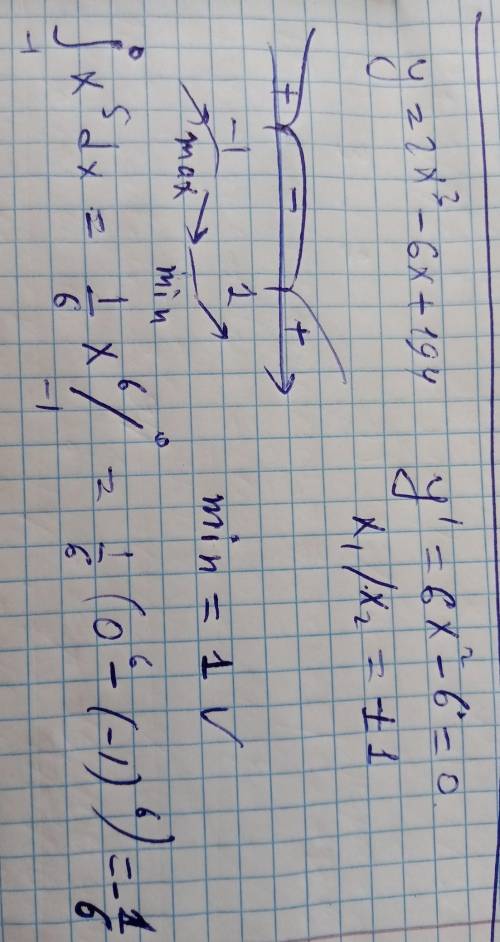 y = 2x³ - 6x + 194
y' = 6x² - 6 = 0
x₁/x₂ = ±1
+ - +
-1 1
max min
min = 1 √
∫₋₁⁰ x⁵dx = 1/6 x⁶ /₋₁⁰ = 1/6 (0⁶ - (-1)⁶) = -1/6